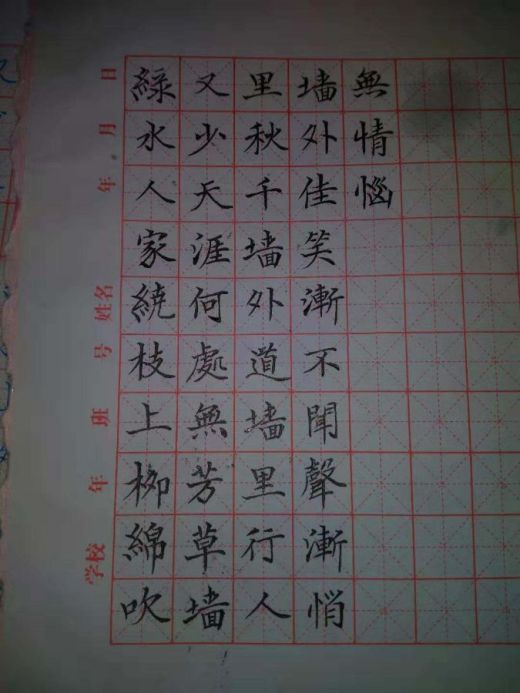 綠水人家繞枝上柳綿吹
又少天涯何處無芳草墙
里秋千墙外道墙里行人
墙外佳笑漸不聞聲漸悄
無情惱
学校 年 班 号 姓名 年 月 日